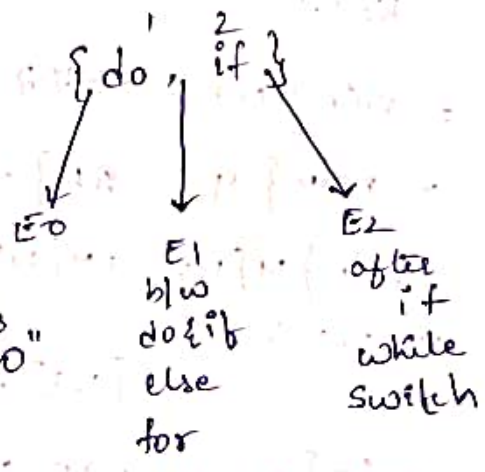 1 2
{ do , if }
E0
E1
b/w
do & if
else
for
E2
after
if
while
switch
0"